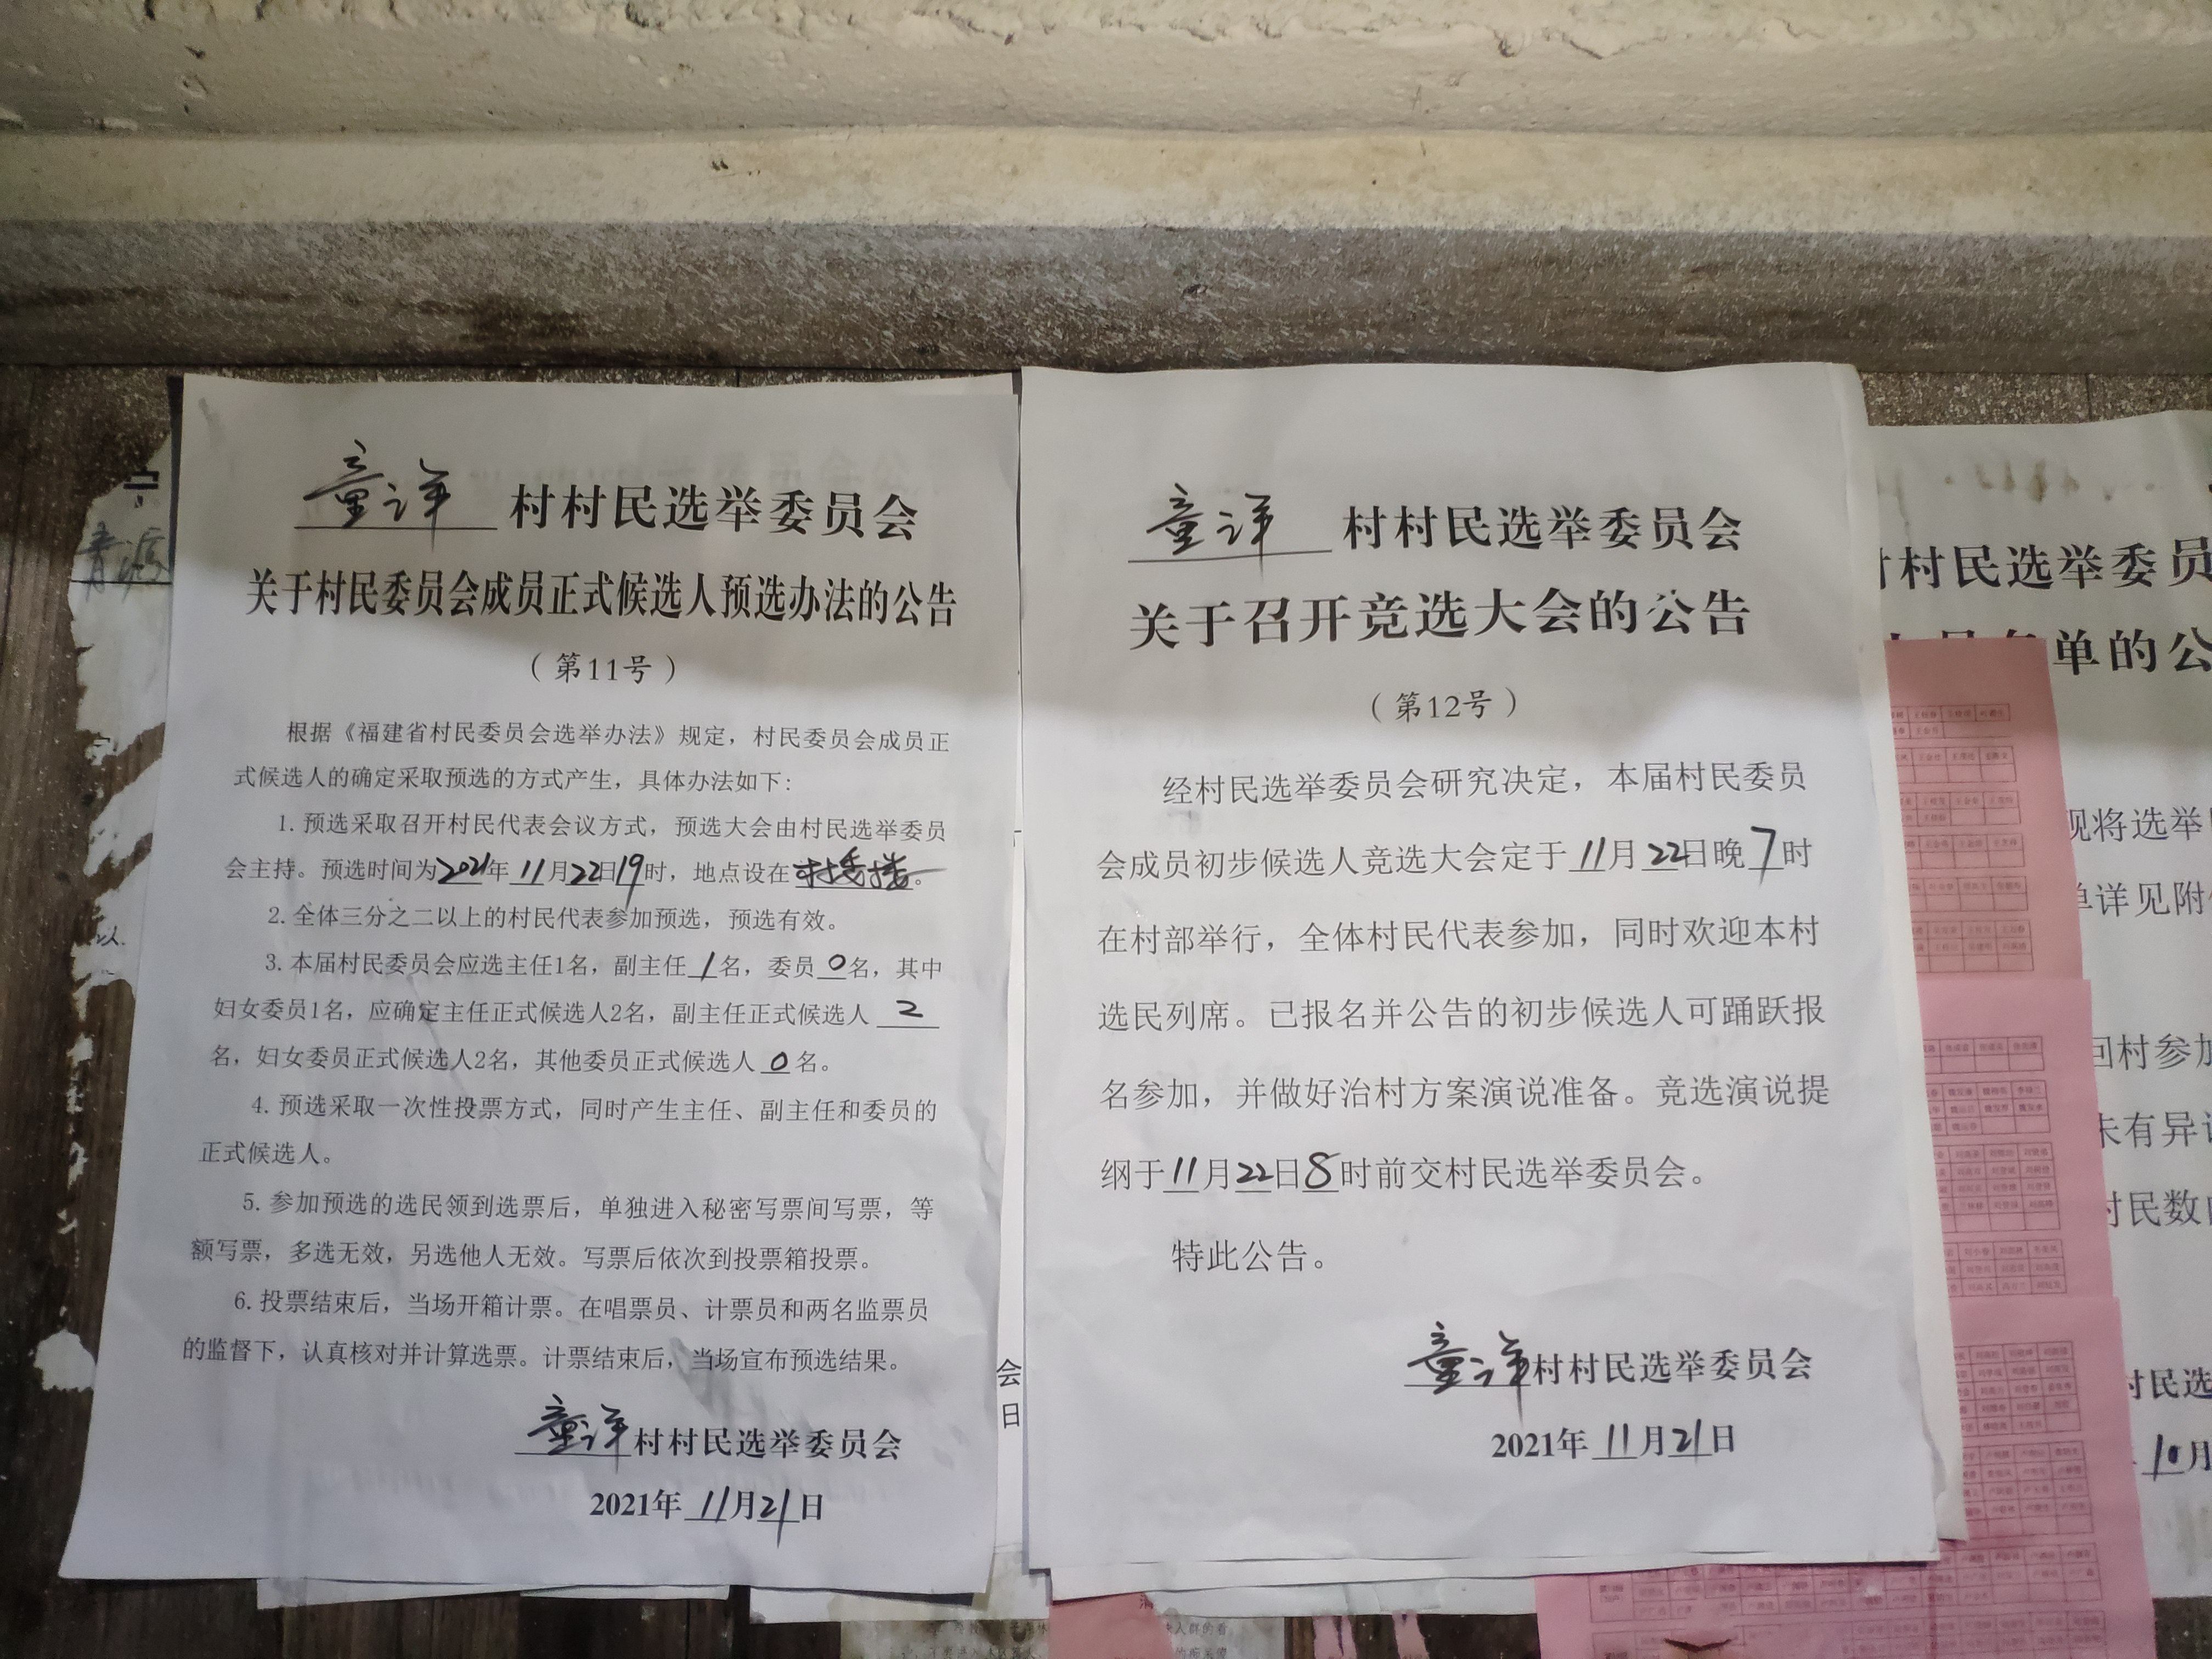 童洋村村民选举委员会
关于村民委员会成员正式候选人预选办法的公告
（第11号）
根据《福建省村民委员会选举办法》规定，村民委员会成员正
式候选人的确定采取预选的方式产生，具体办法如下：
1. 预选采取召开村民代表会议方式，预选大会由村民选举委员
会主持。预选时间为2021年11月22日19时，地点设在村委楼。
2. 全体三分之二以上的村民代表参加预选，预选有效。
3. 本届村民委员会应选主任1名，副主任1名，委员0名，其中
妇女委员1名，应确定主任正式候选人2名，副主任正式候选人2
名，妇女委员正式候选人2名，其他委员正式候选人0名。
4. 预选采取一次性投票方式，同时产生主任、副主任和委员的
正式候选人。
5. 参加预选的选民领到选票后，单独进入秘密写票间写票，等
额写票，多选无效，另选他人无效。写票后依次到投票箱投票。
6. 投票结束后，当场开箱计票。在唱票员、计票员和两名监票员
的监督下，认真核对并计算选票。计票结束后，当场宣布预选结果。
童洋村村民选举委员会
2021年11月21日
会
日
童洋村村民选举委员会
关于召开竞选大会的公告
（第12号）
经村民选举委员会研究决定，本届村民委员
会成员初步候选人竞选大会定于11月22日晚7时
在村部举行，全体村民代表参加，同时欢迎本村
选民列席。已报名并公告的初步候选人可踊跃报
名参加，并做好治村方案演说准备。竞选演说提
纲于11月22日8时前交村民选举委员会。
特此公告。
童洋村村民选举委员会
2021年11月21日
村村民选举委员
单的公
现将选举
单详见附
回村参加
未有异
村民数
村民选
10月